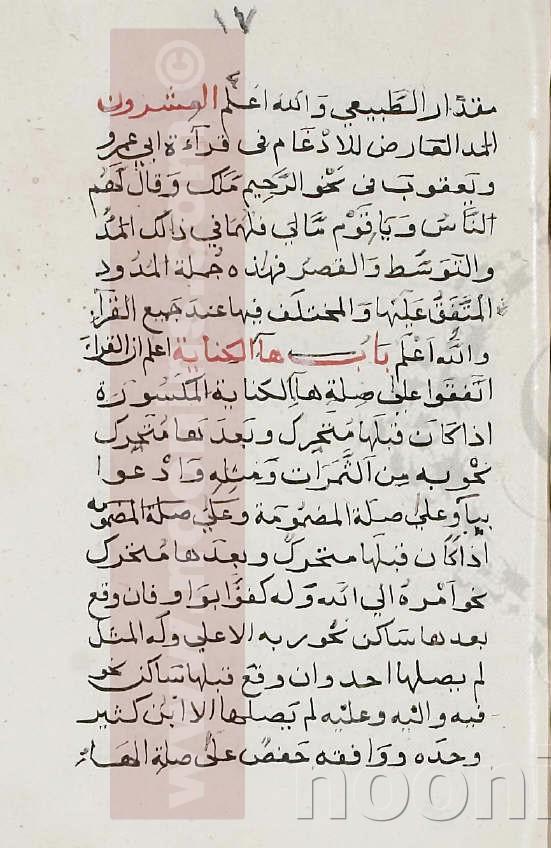 ١٧
مقدار الطبيعي والله اعلم العشرون
المد العارض للادغام في قرآءة ابي عمرو
ويعقوب في نحو الرحيم ملك وقال لهم
الناس ويا قوم مالي فلهما في ذلك المد
والتوسط والقصر فهذه جملة المدود
المتفق عليها والمختلف فيها عند جميع القرآء
والله اعلم باب هآ الكناية اعلم ان القرآء
اتفقوا على صلة هآ الكناية المكسورة
اذا كان قبلها متحرك وبعدها متحرك
نحو به من الثمرات ومثله وادعوا
بيآء وعلى صلة المضمومة وعلى صلة المضمومة
اذا كان قبلها متحرك وبعدها متحرك
نحو امره الي الله وله كفوا بواو فان وقع
بعدها ساكن نحو ربه الاعلي وله المثل
لم يصلها احد وان وقع قبلها ساكن نحو
فيه واليه وعليه لم يصلها الا ابن كثير
وحده ووافقه حفص على صلة الهاء
nooni